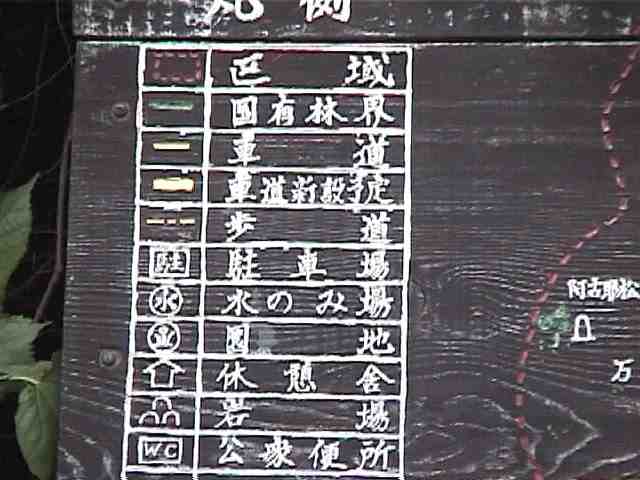 凡例
区域
国有林界
車道
車道新設予定
歩道
駐 駐車場
水 水のみ場
園地
休憩舎
岩場
WC 公衆便所
阿古耶松
万